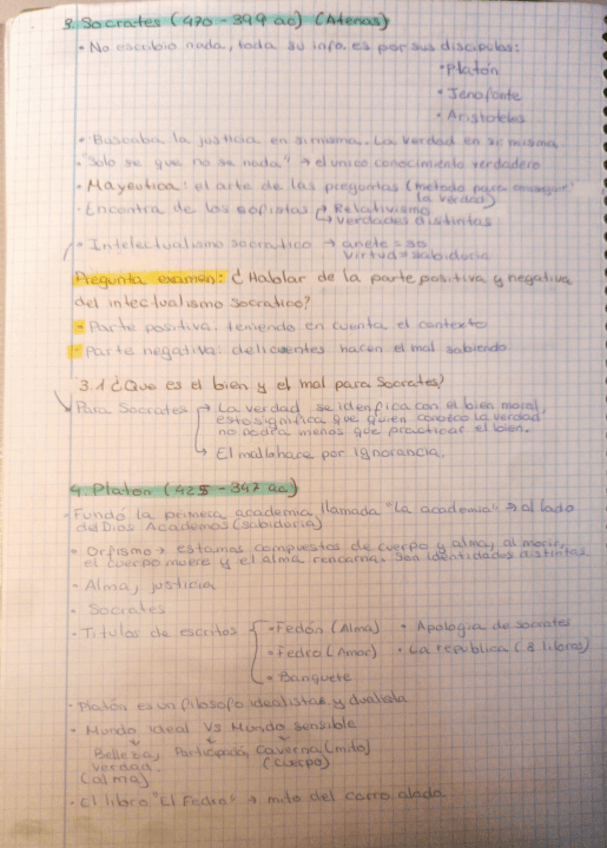 3. Socrates (470 - 399 ac) (Atenas)
· No escribio nada, toda su info. es por sus discipulos:
· Platón
· Jenofonte
· Aristoteles
· Buscaba la justicia en si misma. La verdad en si misma.
· "Solo se que no se nada" → el unico conocimiento verdadero
· Mayeutica: el arte de las preguntas (metodo para conseguir
la verdad)
· Encontra de los sofistas → Relativismo
→ verdades distintas
· Intelectualismo socratico →
Virtud = sabiduria
Pregunta examen: ¿Hablar de la parte positiva y negativa
del intectualismo socratico?
- Parte positiva: teniendo en cuenta el contexto
- Parte negativa: delicuentes hacen el mal sabiendo.
3.1 ¿Que es el bien y el mal para Socrates?
Para Socrates → La verdad se idenfica con el bien moral,
esto significa que quien conozca la verdad
no podra menos que practicar el bien.
→ El mal lo hace por ignorancia.
4. Platon (425 - 347 ac)
· Fundó la primera academia, llamada "La academia" → al lado
del Dios Academos (sabiduria)
· Orfismo → estamos compuestos de cuerpo y alma, al morir,
el cuerpo muere y el alma rencarna. Son identidades distintas.
· Alma, justicia
· Socrates
· Titulos de escritos { · Fedón (Alma) · Apologia de socrates
· Fedro (Amor) · La republica (8 libros)
· Banquete
· Platón es un filosofo idealista y dualista
· Mundo ideal VS Mundo sensible
Belleza, Participación, Caverna (mito)
verdad (cuerpo)
(alma)
· El libro "El Fedro" → mito del carro alado